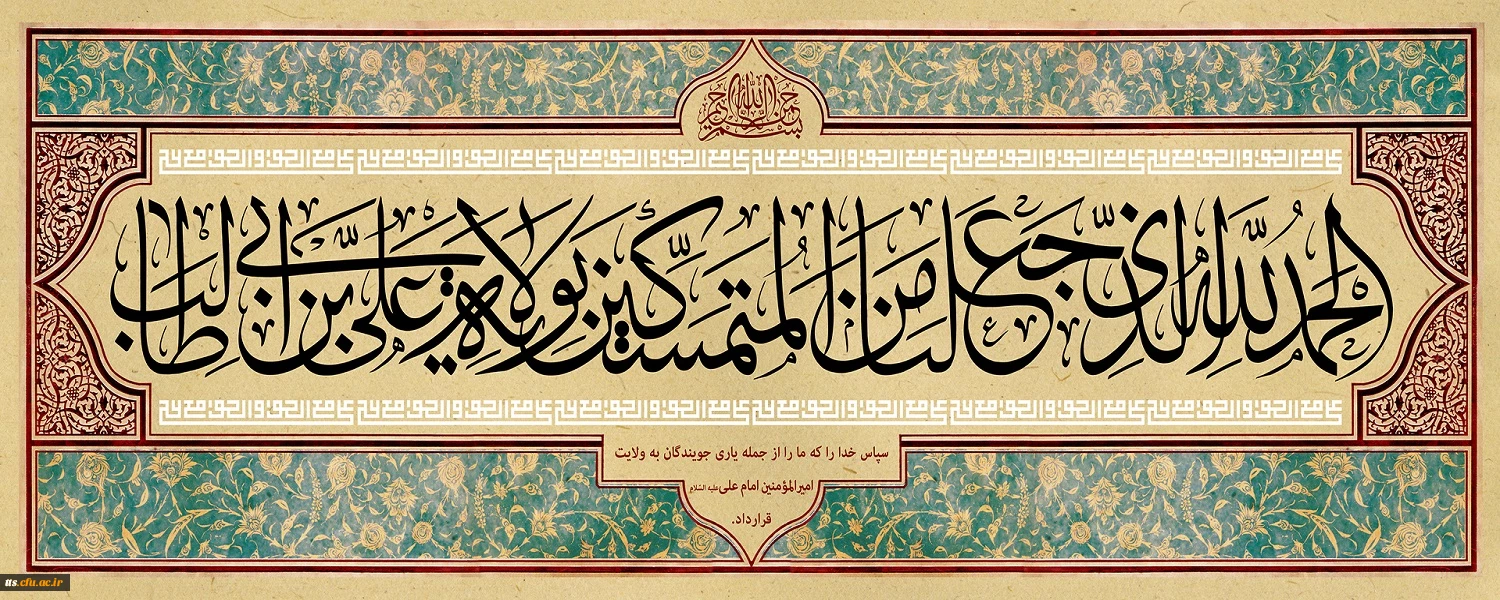 بسم الله الرحمن الرحیم
علی مع الحق و الحق مع علی علی مع الحق و الحق مع علی علی مع الحق و الحق مع علی علی مع الحق و الحق مع علی علی مع الحق و الحق مع علی علی مع الحق و الحق مع علی
الحَمدُ لِلّهِ الَّذی جَعَلَنا مِنَ المُتَمَسِّکینَ بِوِلایَةِ عَلیِّ بنِ اَبی طالِب
علی مع الحق و الحق مع علی علی مع الحق و الحق مع علی علی مع الحق و الحق مع علی علی مع الحق و الحق مع علی علی مع الحق و الحق مع علی علی مع الحق و الحق مع علی
سپاس خدا را که ما را از جمله یاری جویندگان به ولایت
امیرالمؤمنین امام علی علیه السّلام
قرارداد.
tts.cfu.ac.ir